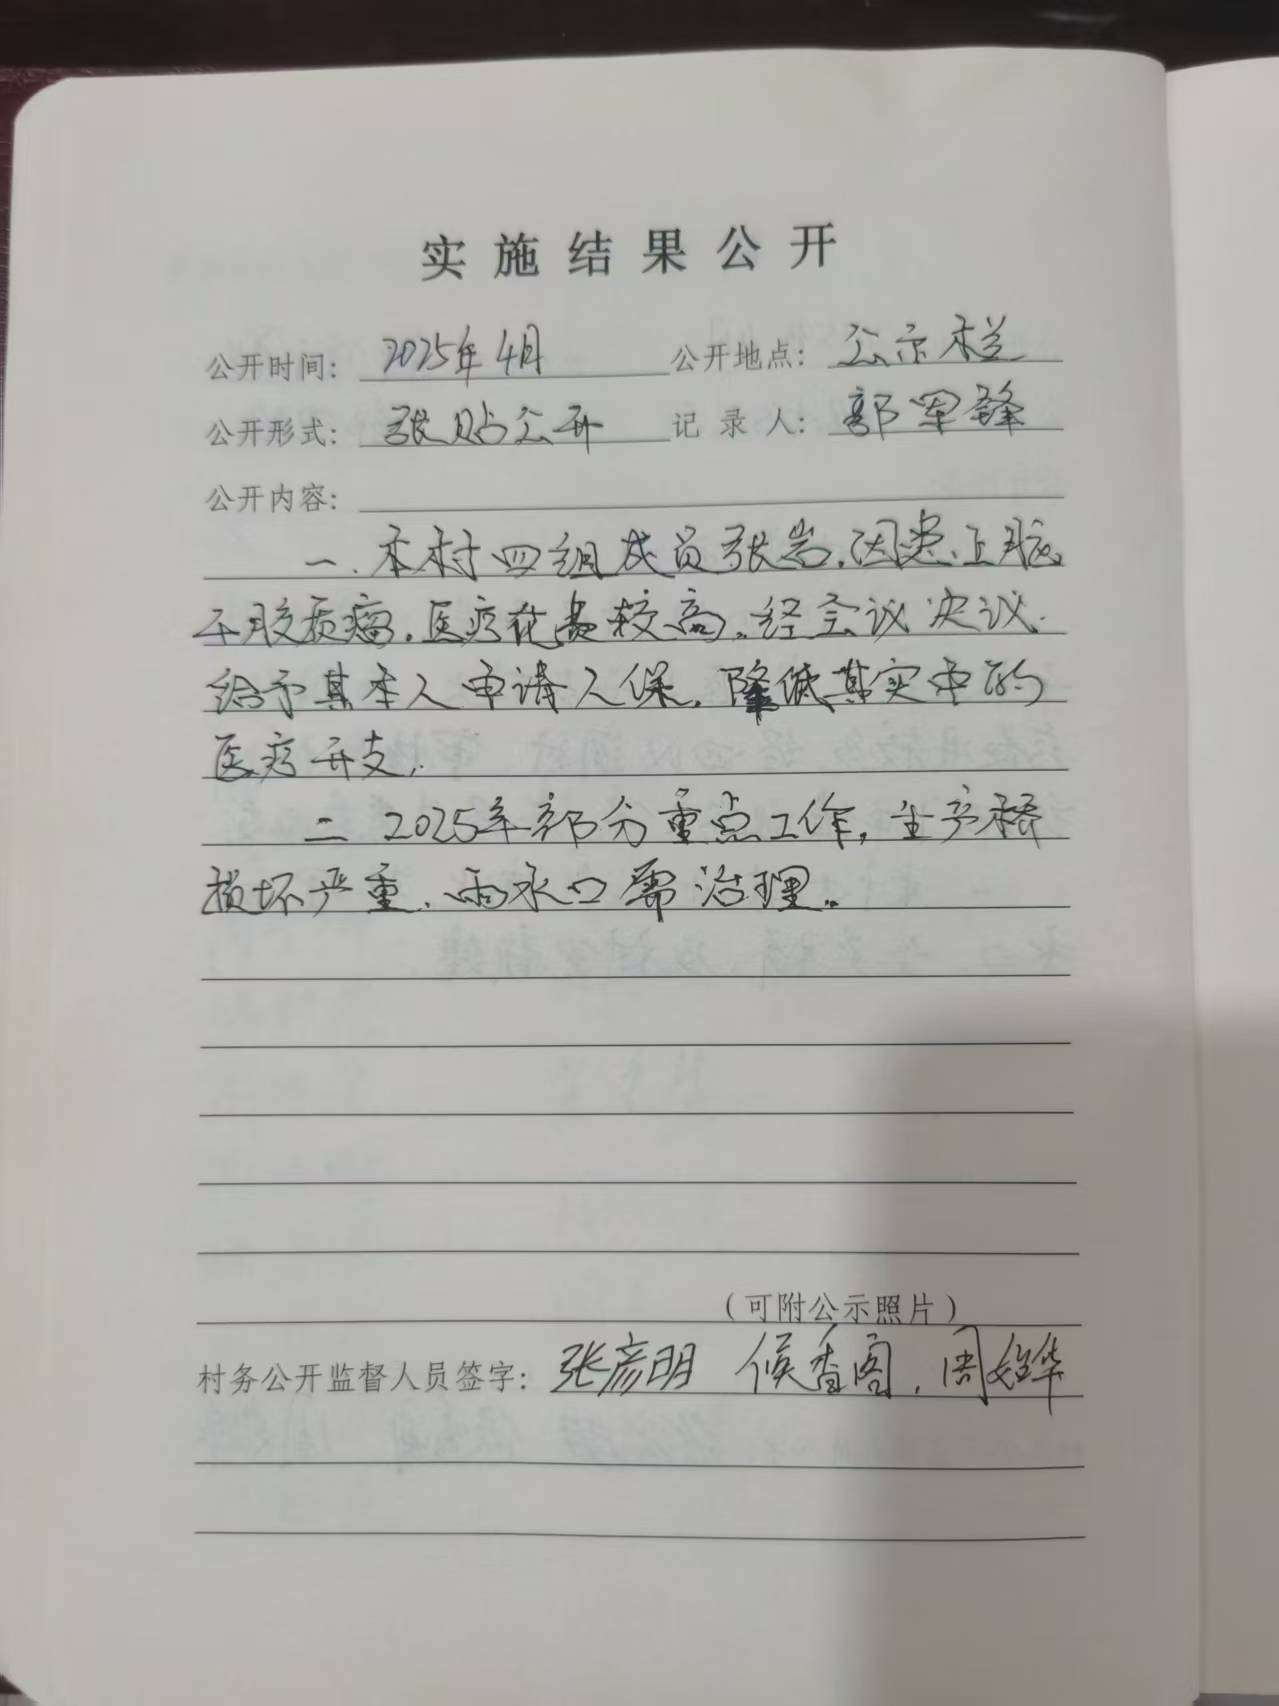 实施结果公开
公开时间：2025年4月 公开地点：公示栏
公开形式：张贴公开 记录人：郭军锋
公开内容：
一、本村四组成员张岩，因患上脑
干胶质瘤，医疗花费较高，经会议决议，
给予其本人申请入保，降低其实申的
医疗开支，
二 2025年部分重点工作，生产桥
损坏严重，雨水口需治理。
（可附公示照片）
村务公开监督人员签字：张彦明 候香阁，周华